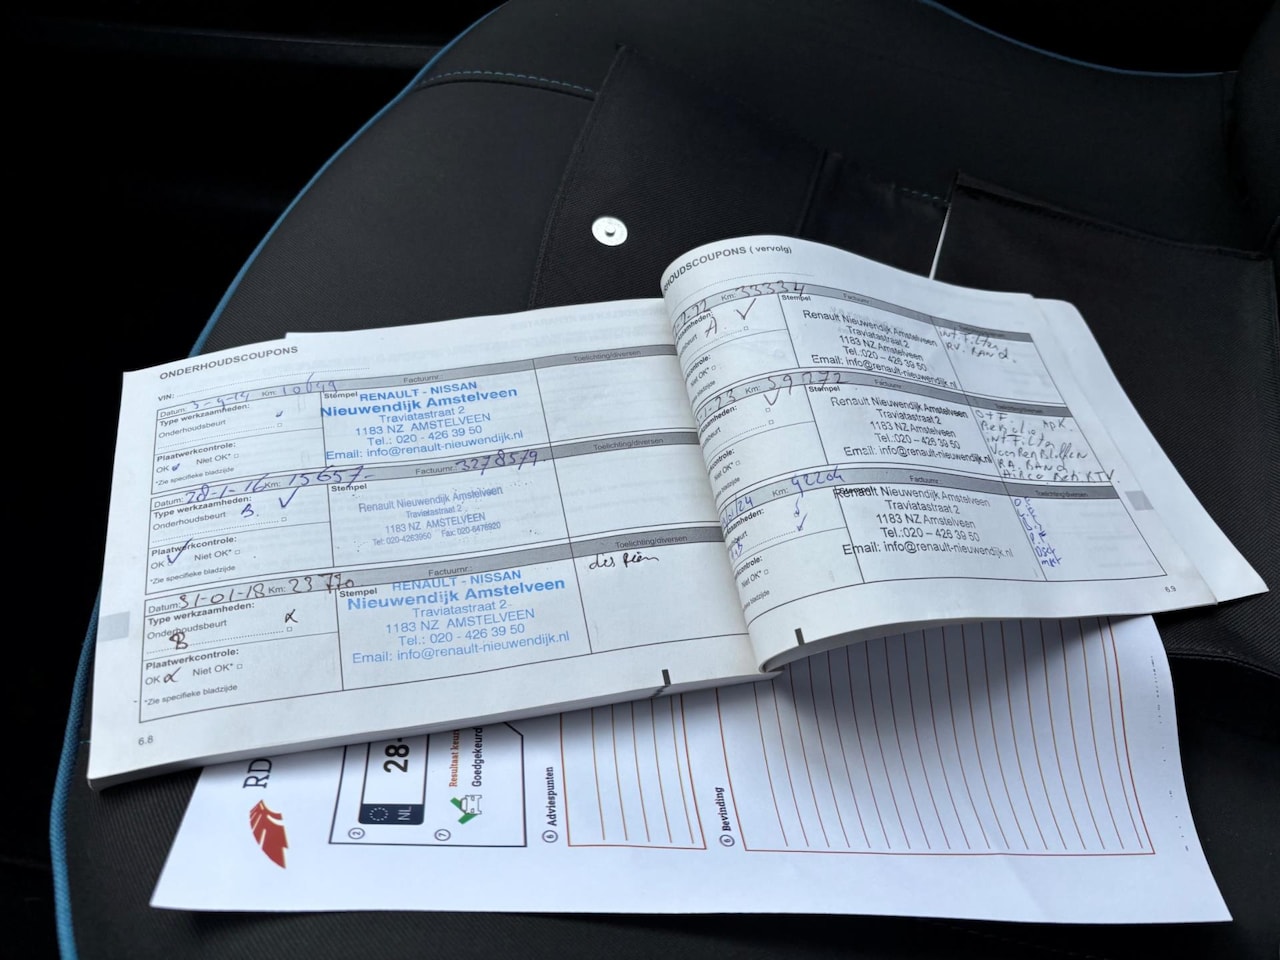 ONDERHOUDSCOUPONS
VIN:
Datum: Km: Factuurnr. Toelichting/diversen
Type werkzaamheden: Stempel
Onderhoudsbeurt
Plaatwerkcontrole:
OK Niet OK*
*Zie specifieke bladzijde
RENAULT - NISSAN
Nieuwendijk Amstelveen
Traviatastraat 2
1183 NZ AMSTELVEEN
Tel.: 020 - 426 39 50
Email: info@renault-nieuwendijk.nl
Datum: 28-1-16 Km: 15657 Factuurnr. 3278579 Toelichting/diversen
Type werkzaamheden: Stempel
Onderhoudsbeurt B.
Plaatwerkcontrole:
OK Niet OK*
*Zie specifieke bladzijde
Renault Nieuwendijk Amstelveen
Traviatastraat 2
1183 NZ AMSTELVEEN
Tel: 020-4263950 Fax: 020-6476920
Datum: 31-01-18 Km: 23770 Factuurnr.: Toelichting/diversen
Type werkzaamheden: Stempel
Onderhoudsbeurt
B
Plaatwerkcontrole:
OK Niet OK*
*Zie specifieke bladzijde
RENAULT - NISSAN
Nieuwendijk Amstelveen
Traviatastraat 2
1183 NZ AMSTELVEEN
Tel.: 020 - 426 39 50
Email: info@renault-nieuwendijk.nl
6.8
HOUDSCOUPONS ( vervolg)
Km: 33334 Factuurnr.
Stempel
A.
OK*
Renault Nieuwendijk Amstelveen
Traviatastraat 2
1183 NZ Amstelveen
Tel.:020 - 426 39 50
Email: info@renault-nieuwendijk.nl
int Filter
RV. BAND.
Km: Factuurnr. Toelichting/diversen
Stempel
Niet OK*
Renault Nieuwendijk Amstelveen
Traviatastraat 2
1183 NZ Amstelveen
Tel.:020 - 426 39 50
Email: info@renault-nieuwendijk.nl
int Filter
RA. BAND
Km: 42204 Factuurnr. Toelichting/diversen
Stempel
Niet OK*
Renault Nieuwendijk Amstelveen
Traviatastraat 2
1183 NZ Amstelveen
Tel.:020 - 426 39 50
Email: info@renault-nieuwendijk.nl
6.9
RD
2
NL
28-
7
Resultaat keu
Goedgekeurd
6 Adviespunten
6 Bevinding